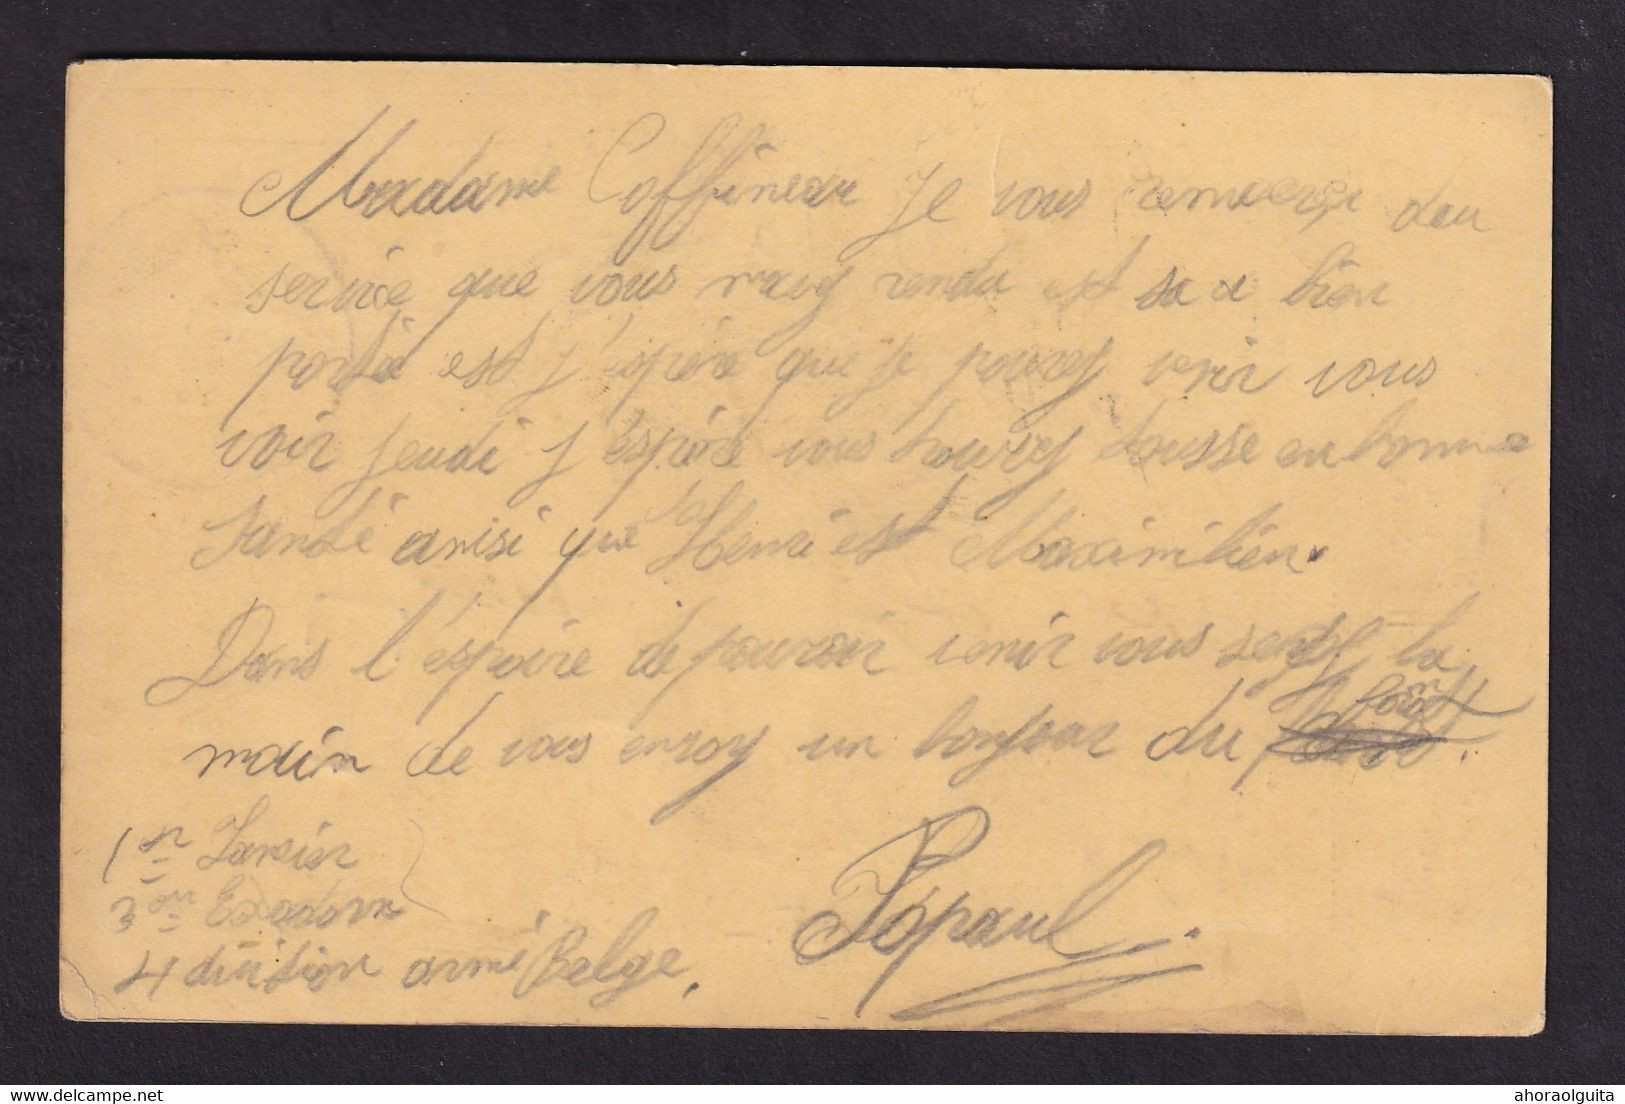 Madame Coffineau Je vous remerci deu
service que vous mavey rendu est sa a bien
portée est j'espère que je pourey venir vous
voir Jeudi J'espère vous trourey tousse en bonne
Santé ansi que Henri est Maximilien.
Dans l'éspoire de pouvoir venir vous serre la
main de vous envoy un bonjour du front.
1er Lancier
3em Exadorn
4 division armé Belge.
Pópaul
ahoraolguita